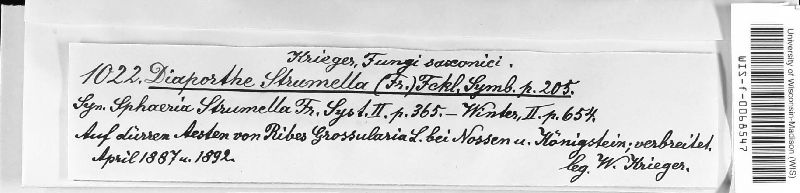 Krieger, Fungi saxonici.
1022. Diaporthe Strumella (Fr.) Fckl. Symb. p. 205.
Syn. Sphaeria Strumella Fr. Syst. II. p. 365. – Winter, II. p. 654.
Auf dürren Aesten von Ribes Grossularia L. bei Nossen u. Königstein; verbreitet.
April 1887 u. 1892.
leg. W. Krieger.
University of Wisconsin-Madison (WIS)
WIS-f-0068547